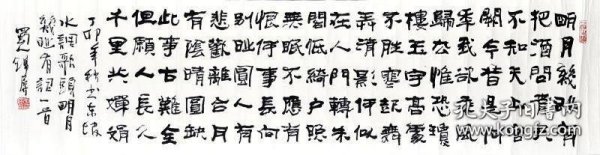 明月幾時有
把酒問青天
不知天上宮
闕今昔是何
年我欲乘風
歸去惟恐瓊
樓玉宇高處
不勝寒起舞
弄清影何似
在人間轉朱
閣低綺戶照
無眠不應有
恨何事長向
別時圓月
有陰晴圓缺
此事古難全
但願人長久
千里共嬋娟
丁卯年秋书东坡
水調歌頭明月
幾時有詞一首